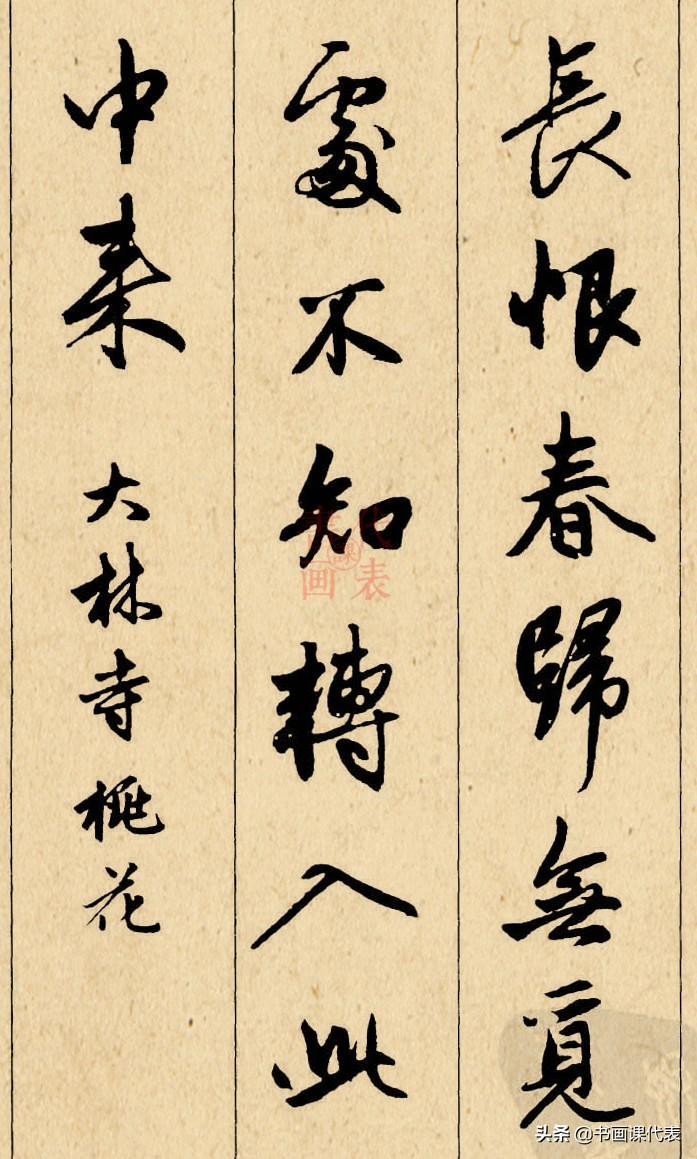 長恨春歸無覓
處不知轉入此
中来
大林寺桃花
書代
畫課表
头条 @书画课代表